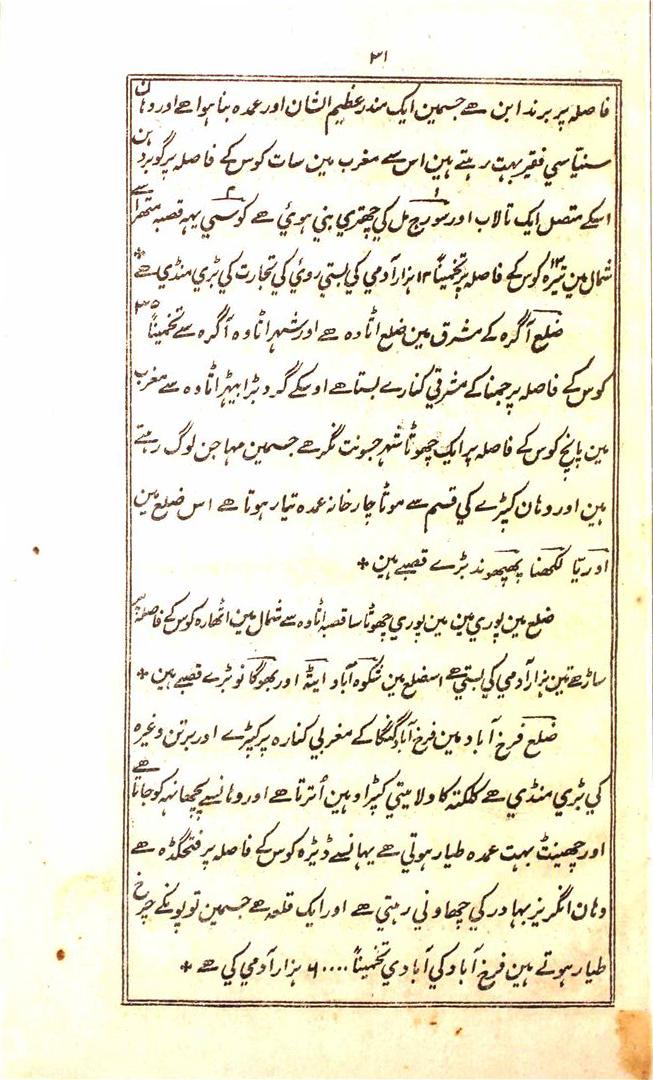 ۳۱
فاصلہ پر برندابن ھے جسمین ایک مندر عظیم الشان اور عمدہ بنا ہوا ھے اور وہان
سنیاسي فقیر بہت رہتے ہین اس سے مغرب مین سات کوس کے فاصلہ پر گوبردہن
اسکے متصل ایک تالاب اور سورج مل کي چھتري بني ہوئي ھے کوسي یہہ قصبہ متھرا سے
شمال مین تیرہ ۱۳ کوس کے فاصلہ پر تخمیناً ۱۲ ہزار آدمي کي بستي روئي کي تجارت کي بڑي منڈي ھے *
ضلع آگرہ کے مشرق مین ضلع اٹاوہ ھے اور شہر اٹاوہ آگرہ سے تخمیناً ۳۵
کوس کے فاصلہ پر جمنا کے مشرقي کنارے بستا ھے اوسکے گرد بڑا بیہڑ اٹاوہ سے مغرب
مین پانچ کوس کے فاصلہ پر ایک چھوٹا شہر جسونت نگر ھے جسمین مہاجن لوگ رہتے
ہین اور وہان کپڑے کي قسم سے موٹا چارخانہ عمدہ تیار ہوتا ھے اس ضلع مین
اوریّا لکھنا پھپھوند بڑے قصبے ہین *
ضلع مین پوري مین مین پوري چھوٹا سا قصبہ اٹاوہ سے شمال مین اٹھارہ کوس کے فاصلہ پر
ساڑھے تین ہزار آدمي کي بستي ھے اسضلع مین شکوہ آباد ایٹہ اور بھوگانو بڑے قصبے ہین *
ضلع فرخ آباد مین فرخ آباد گنگا کے مغربي کنارہ پر کپڑے اور برتن وغیرہ
کي بڑي منڈي ھے کلکتہ کا ولایتي کپڑا وہین اُترتا ھے اور وہانسے پچھانہہ کو جاتا ھے
اور چھینٹ بہت عمدہ طیار ہوتي ھے یہانسے ڈیڑہ کوس کے فاصلہ پر فتحگڈہ ھے
وہان انگریز بہادر کي چھاوني رہتي ھے اور ایک قلعہ ھے جسمین توپونکے چرخ
طیار ہوتے ہین فرخ آباد کي آبادي تخمیناً ۶۰۰۰۰ ہزار آدمي کي ھے *